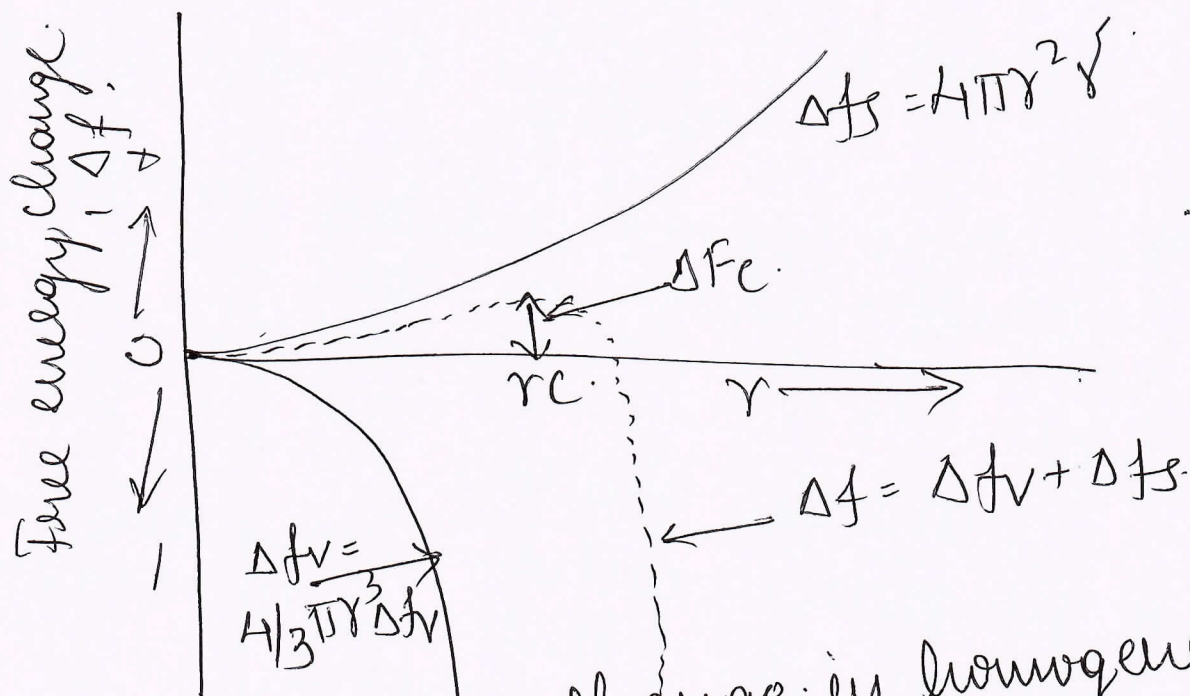 Free energy change
Δf,
+
0
−
Δfs = 4πr²γ
ΔFc.
rc.
r
Δf = Δfv + Δfs.
Δfv =
4/3 πr³Δfv
in homogen